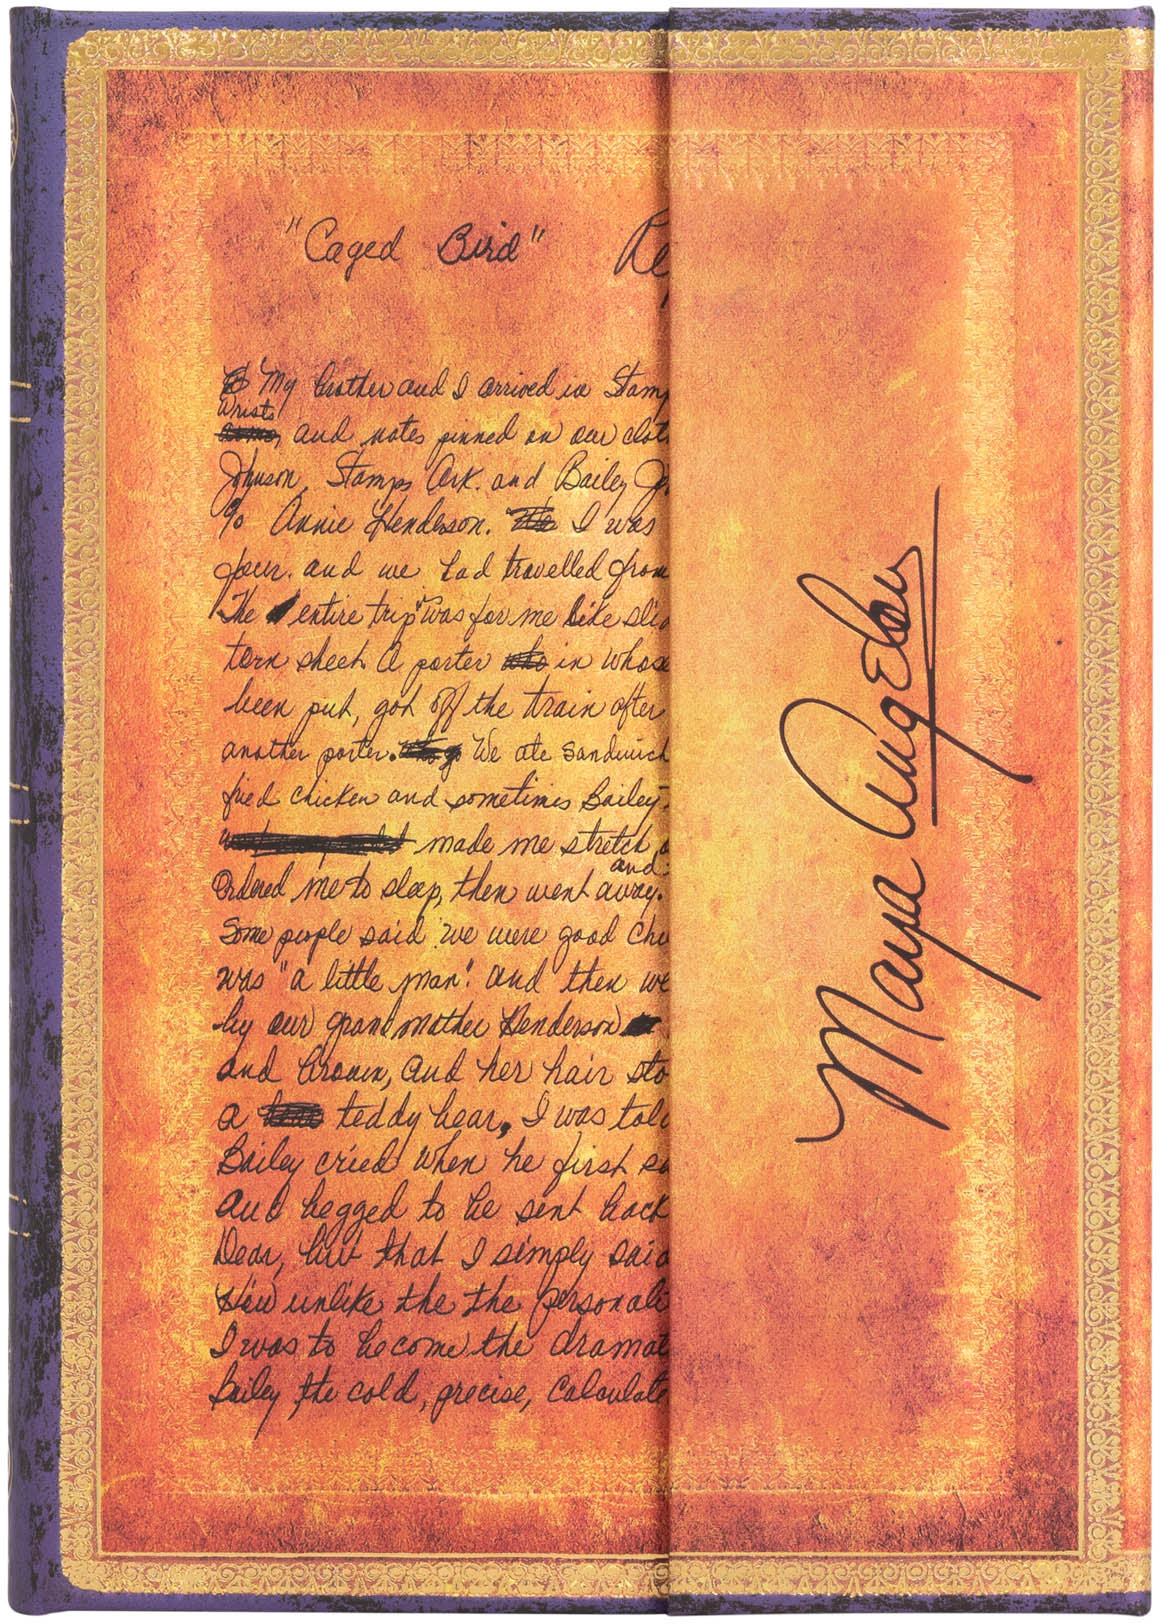 "Caged Bird" Re
My brother and I arrived in Stamp
wrists
and notes pinned on our clot
Johnson, Stamps Ark. and Bailey Jo
℅ Annie Henderson. I was
four. and we had travelled from
The entire trip was for me like slid
torn sheet. A porter in whose
been put, got off the train after
another porter. We ate sandwich
fried chicken and sometimes Bailey
made me stretch
and
ordered me to sleep, then went away.
Some people said we were good chi
was "a little man". and then we
by our grandmother Henderson
and brown, and her hair sto
a teddy bear, I was told
Bailey cried when he first sa
and begged to be sent back
Dear, but that I simply said
How unlike the the personali
I was to become the dramat
Bailey the cold, precise, calculate
Maya Angelou